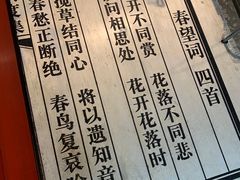 春望词 四首
开不同赏 花落不同悲
问相思处 花开花落时
揽草结同心 将以遗知音
春愁正断绝 春鸟复哀